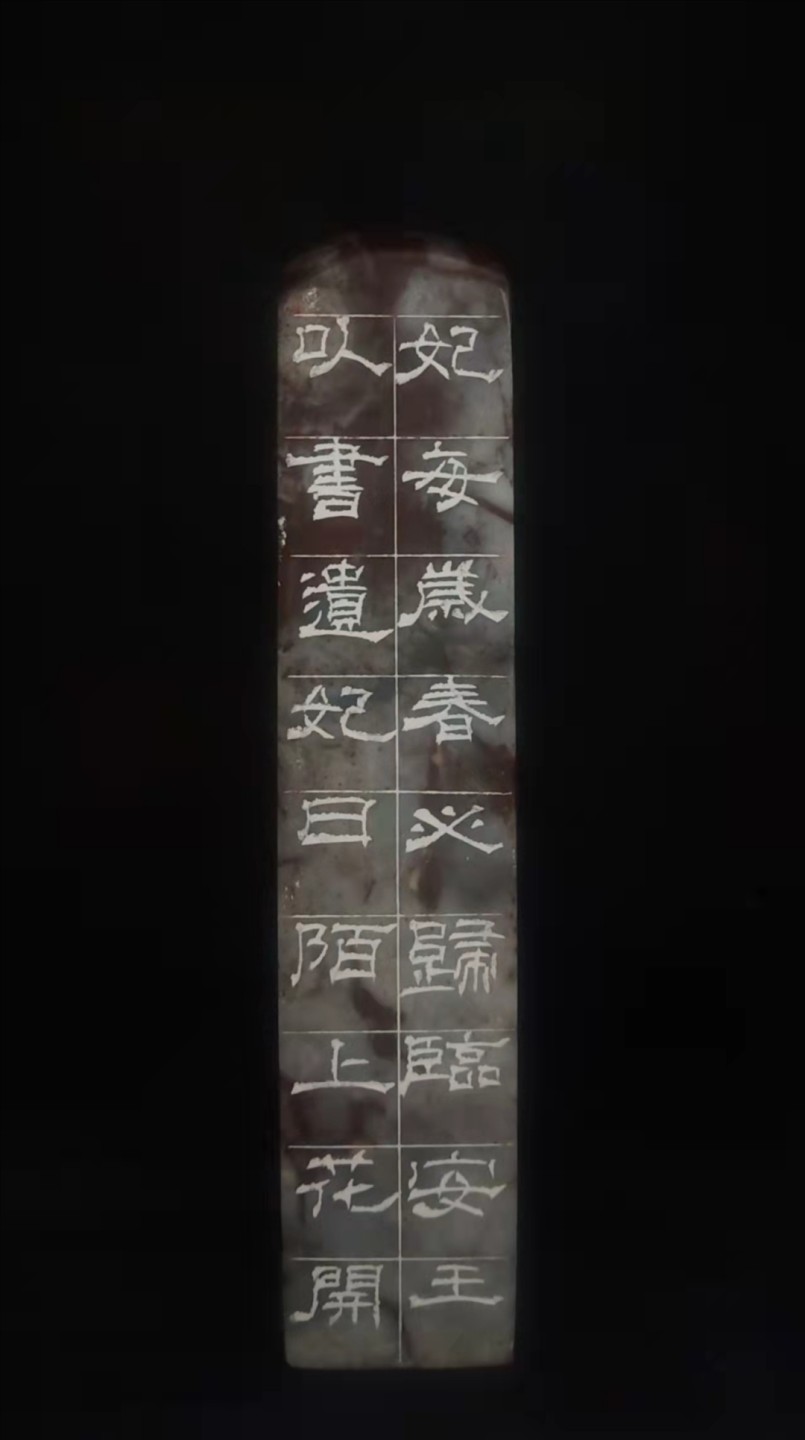 妃每歲春必歸臨安王
㕥書遺妃曰陌上花開